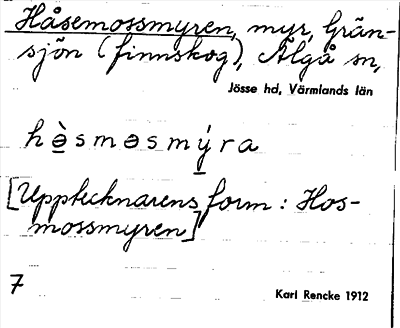 Håsemossmyren, myr, Grän-
sjön (finnskog), Älgå sn,
Jösse hd, Värmlands län
hə̀sməsmýra
[Upptecknarens form: Hos-
mossmyren]
7
Karl Rencke 1912